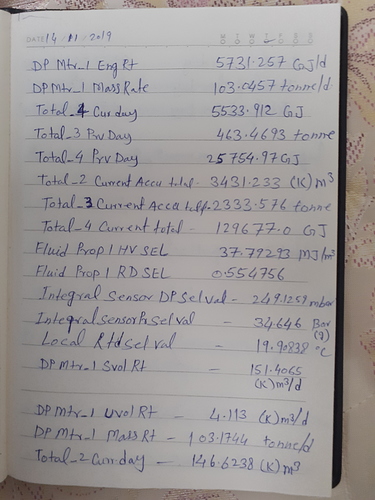 DATE 14 / 11 / 2019
M T W T F S S
DP Mtr_1 Eng Rt 5731.257 GJ/d
DP Mtr_1 Mass Rate 103.0457 tonne/d
Total_4 Cur day 5533.912 GJ
Total_3 Prv Day 463.4693 tonne
Total_4 Prv Day 25754.97 GJ
Total_2 Current Accu total - 3431.233 (K) m³
Total_3 Current Accu total - 2333.576 tonne
Total_4 Current total - 129677.0 GJ
Fluid Prop 1 HV SEL 37.79293 MJ/m³
Fluid Prop 1 RD SEL 0.554756
Integral Sensor DP Sel val - 249.1259 mbar
Integral Sensor Pr Sel val - 34.646 Bar
(g)
Local Rtd sel val - 19.90838 °C
DP Mtr_1 Svol Rt - 151.4065
(K) m³/d
DP Mtr_1 Uvol Rt - 4.113 (K) m³/d
DP Mtr_1 Mass Rt - 103.1744 tonne/d
Total_2 Curr day - 146.6238 (K) m³